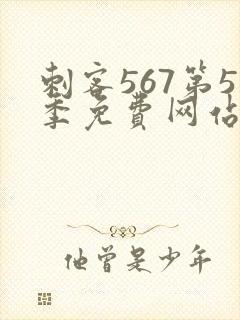 刺客567第5
季免費网站
他曾是少年